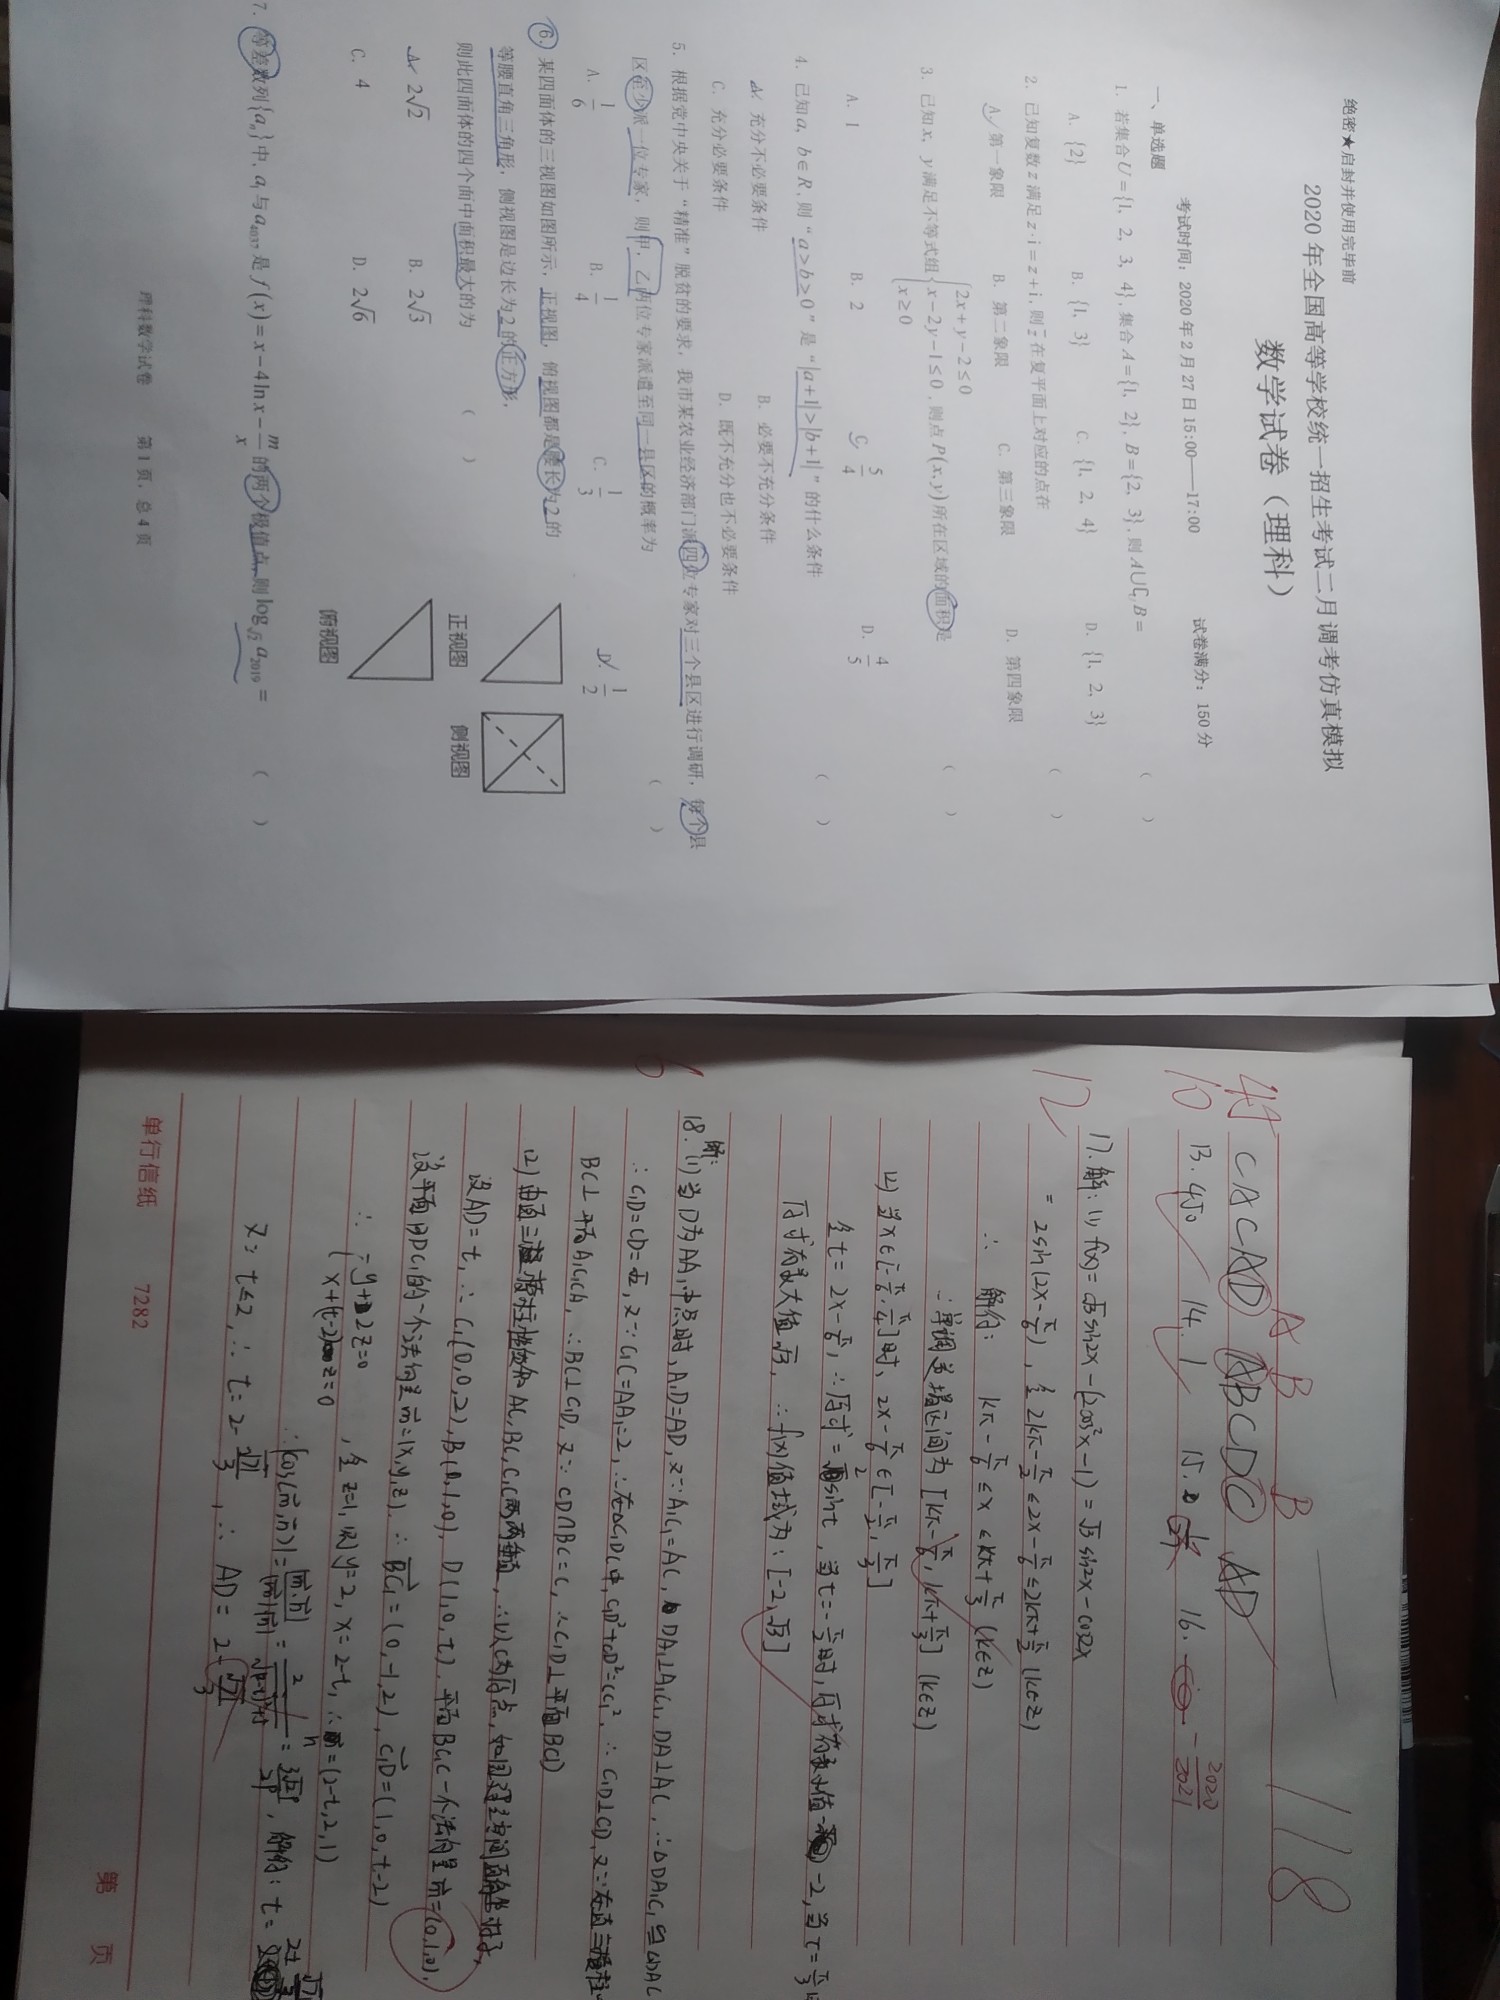 绝密★启封并使用完毕前
2020年全国高等学校统一招生考试二月调考仿真模拟
数学试卷（理科）
考试时间：2020年2月27日15:00——17:00 试卷满分：150分
一、单选题
1. 若集合U={1, 2, 3, 4}, 集合A={1, 2}, B={2, 3}, 则A∪∁UB= （ ）
A. {2} B. {1, 3} C. {1, 2, 4} D. {1, 2, 3}
2. 已知复数z满足z·i=z+i, 则z̄在复平面上对应的点在 （ ）
A. 第一象限 B. 第二象限 C. 第三象限 D. 第四象限
3. 已知x, y满足不等式组{2x+y-2≤0 x-2y-1≤0 x≥0, 则点P(x,y)所在区域的面积是 （ ）
A. 1 B. 2 C. 5/4 D. 4/5
4. 已知a, b∈R, 则“a>b≥0”是“|a+1|>|b+1|”的什么条件 （ ）
A. 充分不必要条件 B. 必要不充分条件
C. 充分必要条件 D. 既不充分也不必要条件
5. 根据党中央关于“精准”脱贫的要求，我市某农业经济部门派四位专家对三个县区进行调研，每个县
区至少派一位专家，则甲，乙两位专家派遣至同一县区的概率为 （ ）
A. 1/6 B. 1/4 C. 1/3 D. 1/2
6. 某四面体的三视图如图所示，正视图，俯视图都是腰长为2的
等腰直角三角形，侧视图是边长为2的正方形，
则此四面体的四个面中面积最大的为 （ ）
A. 2√2 B. 2√3
C. 4 D. 2√6
正视图 侧视图
俯视图
7. 等差数列{aₙ}中, a₁与a₄₀₃₇是f(x)=x-4lnx-m/x的两个极值点, 则log√2 a₂₀₁₉= （ ）
理科数学试卷 第1页，总4页
118
44 CACAD ABCDC AD
A B B
10 13. 450 14. 1 15. 16. -2020/2021
12 17. 解: (1) f(x)=√3sin2x-(2cos²x-1)=√3sin2x-cos2x
=2sin(2x-π/6), 令2kπ-π/2≤2x-π/6≤2kπ+π/2 (k∈Z)
∴ 解得: kπ-π/6≤x≤kπ+π/3 (k∈Z)
∴单调递增区间为[kπ-π/6, kπ+π/3] (k∈Z)
(2) 当x∈[-π/6, π/4]时, 2x-π/6∈[-π/2, π/3]
令t=2x-π/6, ∴原式=2sint, 当t=-π/2时, 原式有最小值-2, 当t=π/3时
原式有最大值√3, ∴f(x)值域为: [-2, √3]
6 18. 解: (1) 当D为AA₁中点时, A₁D=AD, 又∵A₁C₁=AC, DA₁⊥A₁C₁, DA⊥AC, ∴△DA₁C₁≌△DAC
∴C₁D=CD=√2, 又∵C₁C=AA₁=2, ∴在△C₁DC中, C₁D²+CD²=CC₁², ∴C₁D⊥CD, 又∵在直三棱柱
BC⊥平面A₁C₁CA, ∴BC⊥C₁D, 又∵CD∩BC=C, ∴C₁D⊥平面BCD
(2) 由直三棱柱 AC, BC, C₁C两两垂直, ∴以C为原点, 如图建立空间直角坐标系,
设AD=t, ∴C₁(0,0,2), B(0,1,0), D(1,0,t). 平面BC₁C一个法向量
设平面BDC₁的一个法向量m=(x,y,z). ∴BC₁=(0,-1,2), C₁D=(1,0,t-2)
∴{-y+2z=0 x+(t-2)z=0, 令z=1, 则y=2, x=2-t, ∴m=(2-t,2,1)
∴|cos<m,n>|=
又∵t≤2, ∴t=2-√21/3, ∴AD=2-√21/3
单行信纸 7282 第 页